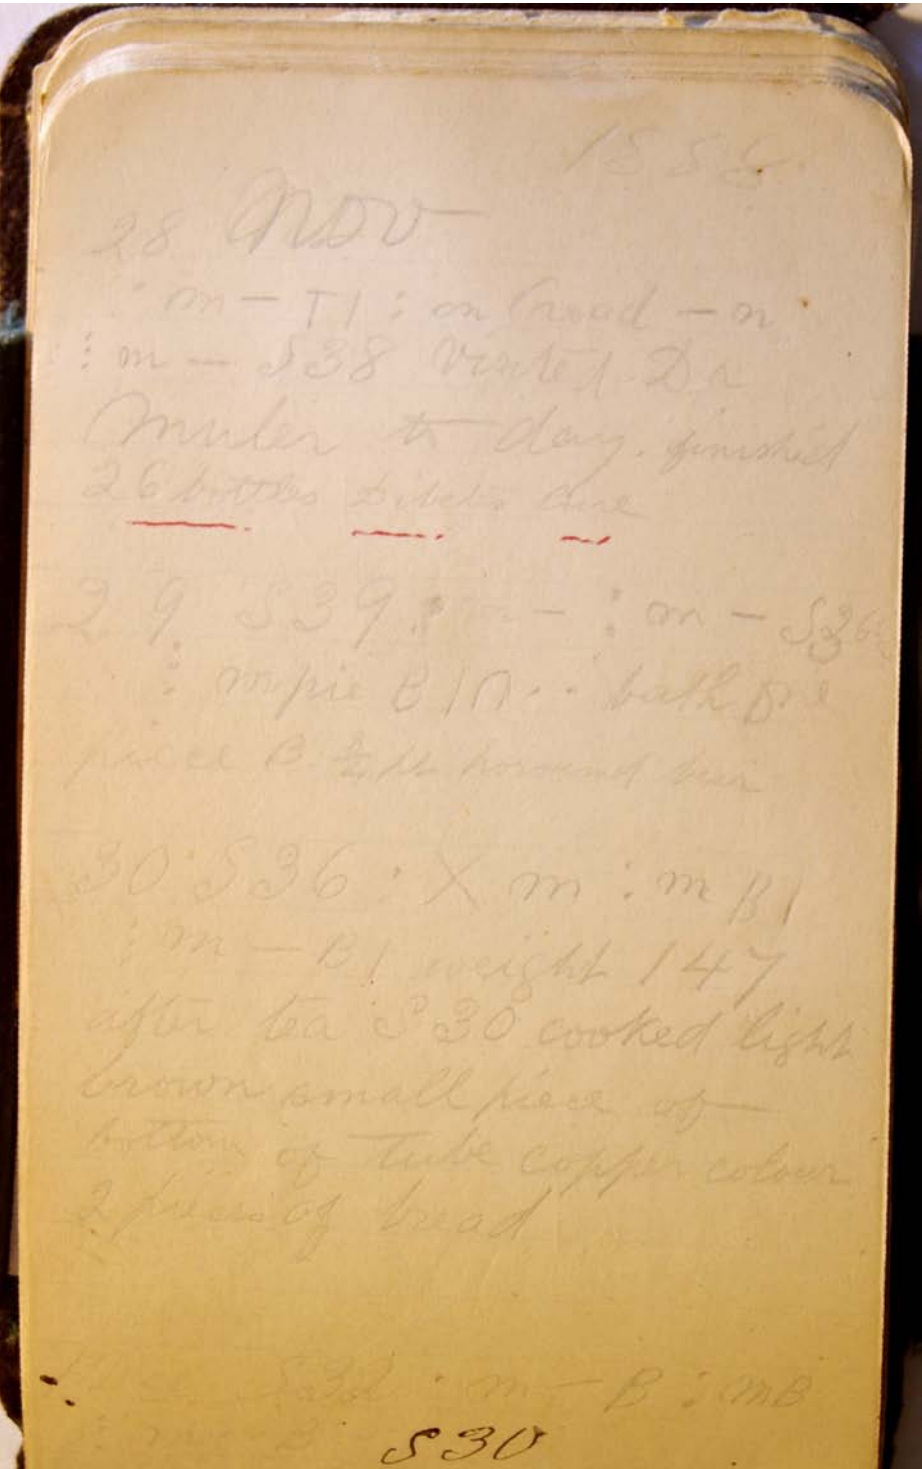 188
28 Nov
: m - T1 : on bread - n
: m - S38 Visited Dr
Muler to day. finished
26 bottles Cure
29 S39 : - : m - S36
: m pie B1 bath one
piece B
30 S36 : X m : m B1
: m - B1 weight 147
after tea S30 cooked light
brown small piece of
bottom of Tube copper colour
2 pieces of bread
S32 : m - B : mB
: m - B
S30